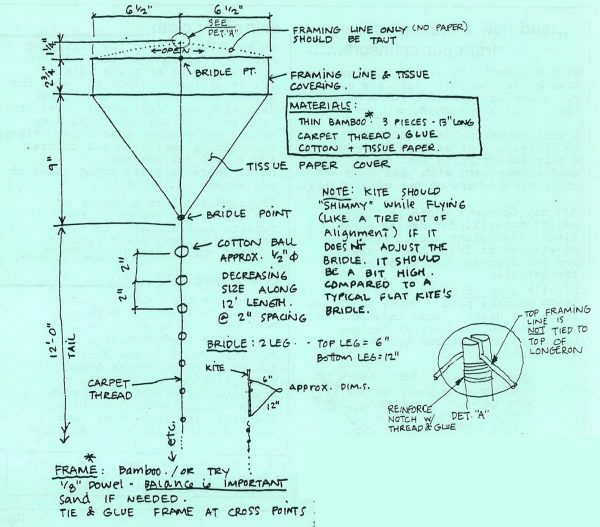 6½" 6½"
SEE
DET."A"
FRAMING LINE ONLY (NO PAPER)
SHOULD BE TAUT
1¼"
OPEN
BRIDLE PT.
2¾"
FRAMING LINE & TISSUE
COVERING.
MATERIALS:
THIN BAMBOO*: 3 PIECES - 13" LONG
CARPET THREAD, GLUE
COTTON + TISSUE PAPER.
9"
TISSUE PAPER COVER
BRIDLE POINT
NOTE: KITE SHOULD
"SHIMMY" WHILE FLYING
(LIKE A TIRE OUT OF
Alignment) IF IT
DOESN'T ADJUST THE
BRIDLE. IT SHOULD
BE A BIT HIGH.
COMPARED TO A
TYPICAL FLAT KITE'S
BRIDLE.
COTTON BALL
APPROX. ½"Φ
DECREASING
SIZE ALONG
12' LENGTH.
@ 2" SPACING
2"
2"
12'-0"
TAIL
BRIDLE: 2 LEG. - TOP LEG = 6"
Bottom LEG = 12"
KITE
6"
12"
APPROX. DIM.S.
CARPET
THREAD
etc.
TOP FRAMING
LINE IS
NOT TIED TO
TOP OF
LONGERON
REINFORCE
NOTCH W/
THREAD & GLUE
DET. "A"
*
FRAME: Bamboo./OR TRY
⅛" DOWEL - BALANCE is IMPORTANT
Sand IF NEEDED.
TIE & GLUE FRAME AT CROSS POINTS